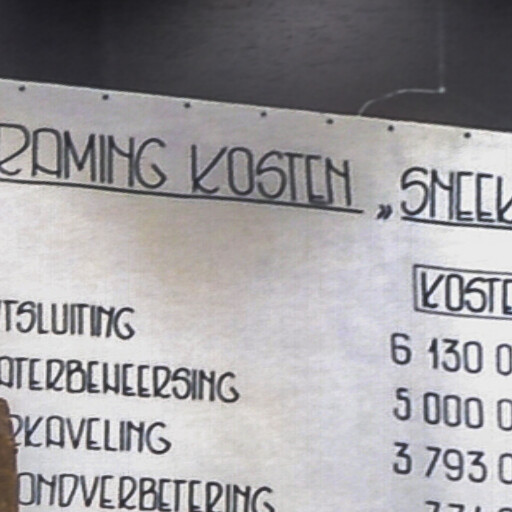 RAMING KOSTEN „SNEEK
KOSTE
TSLUITING 6 130 0
ATERBEHEERSING 5 000 0
RKAVELING 3 793 0
ONDVERBETERING